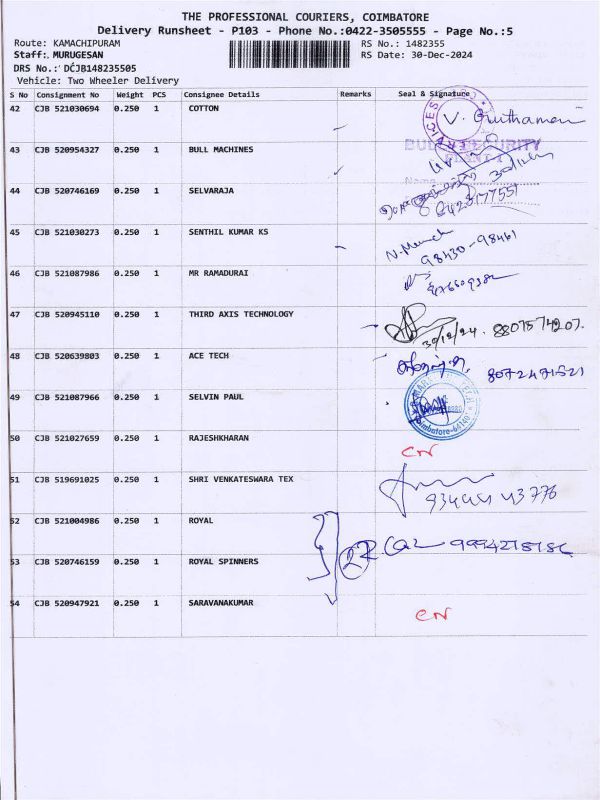 THE PROFESSIONAL COURIERS, COIMBATORE
Delivery Runsheet - P103 - Phone No.:0422-3505555 - Page No.:5
Route: KAMACHIPURAM RS No.: 1482355
Staff: MURUGESAN RS Date: 30-Dec-2024
DRS No.: DCJB148235505
Vehicle: Two Wheeler Delivery
S No Consignment No Weight PCS Consignee Details Remarks Seal & Signature
42 CJB 521030694 0.250 1 COTTON
43 CJB 520954327 0.250 1 BULL MACHINES
44 CJB 520746169 0.250 1 SELVARAJA
45 CJB 521030273 0.250 1 SENTHIL KUMAR KS
98430-98461
46 CJB 521087986 0.250 1 MR RAMADURAI
47 CJB 520945110 0.250 1 THIRD AXIS TECHNOLOGY
30/12/24. 8807574207.
48 CJB 520639803 0.250 1 ACE TECH
8072471521
49 CJB 521087966 0.250 1 SELVIN PAUL
50 CJB 521027659 0.250 1 RAJESHKHARAN CN
51 CJB 519691025 0.250 1 SHRI VENKATESWARA TEX
52 CJB 521004986 0.250 1 ROYAL
53 CJB 520746159 0.250 1 ROYAL SPINNERS
54 CJB 520947921 0.250 1 SARAVANAKUMAR CN